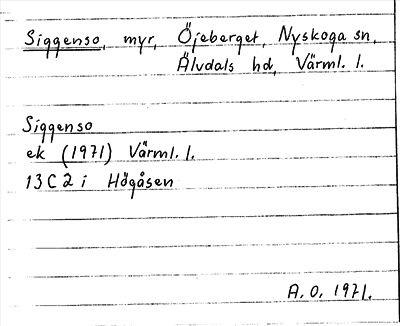 Siggenso, myr, Öjeberget, Nyskoga sn,
Älvdals hd, Värml. l.
Siggenso
ek (1971) Värml. l.
13C2i Högåsen
A. O. 1971.